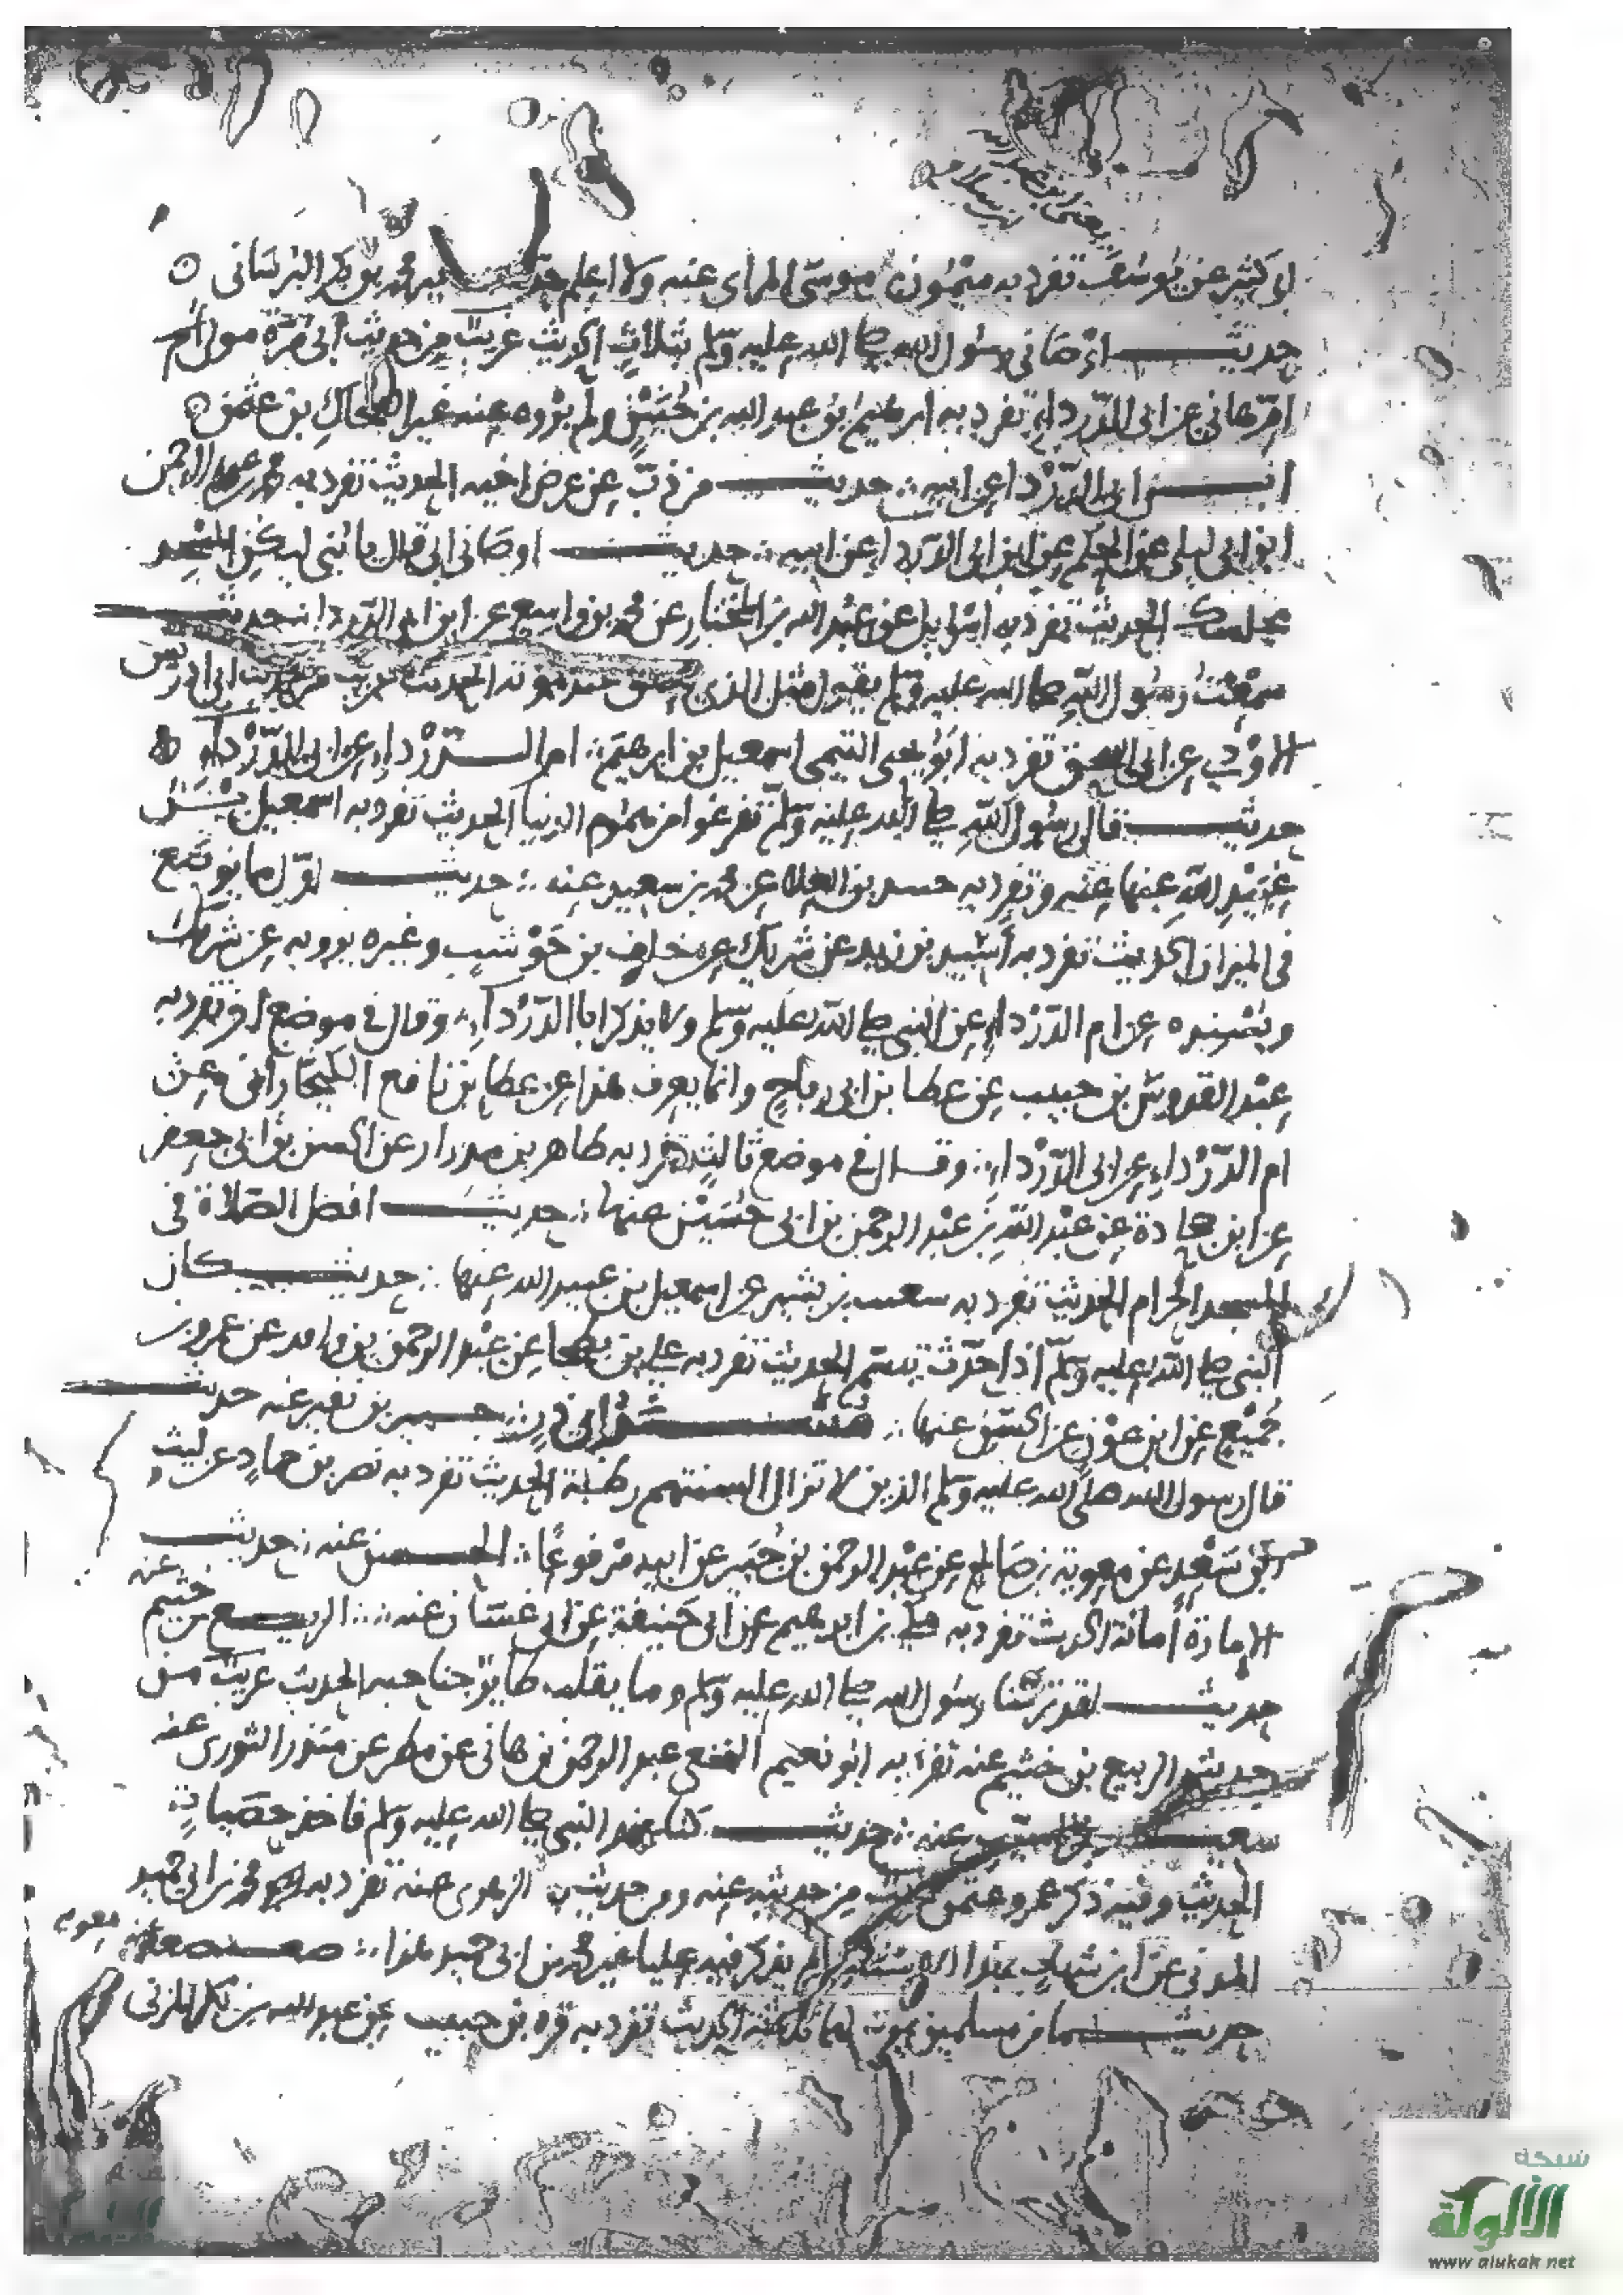 ابى كثير عن يوسف تفرد به ميمون بن موسى المراى عنه ولا اعلم حدث به غير محمد بن بكر البرسانى
حديث اوصانى رسول الله صلى الله عليه وسلم بثلاث الحديث غريب من حديث ابى مرة مولى ام
ام هانى عن ابى الدرداء تفرد به ابرهيم بن عبد الله بن حنين ولم يروه عنه غير الضحاك بن عثمن
ابن ابى الدرداء عن ابيه حديث من ذب عن عرض اخيه الحديث تفرد به محمد بن عبد الرحمن
ابن ابى ليلى عن الحكم عن ابن ابى الدرداء عن ابيه حديث اوصانى ابى قال يا بنى ليكن المسجد
مجلسك الحديث تفرد به اسرايل عن عبد الله بن المختار عن محمد بن واسع عن ابن ابى الدرداء حديث
سمعت رسول الله صلى الله عليه وسلم يقول مثل الذى يعتق عند موته الحديث غريب من حديث ابى ادريس
الاودى عن ابى اسحق تفرد به ابو يحيى التيمى اسمعيل بن ابرهيم ام الدرداء عن ابى الدرداء
حديث قال رسول الله صلى الله عليه وسلم تفرغوا من هموم الدنيا الحديث تفرد به اسمعيل بن
عبيد الله عنها عنه وتفرد به جنيد بن العلاء عن محمد بن سعيد عنه حديث اول ما يوضع
فى الميزان الحديث تفرد به اسيد بن زيد عن شريك عن خلف بن حوشب وغيره يرويه عن شريك
ويسنده عن ام الدرداء عن النبى صلى الله عليه وسلم ولا يذكر ابا الدرداء وقال فى موضع اخر تفرد به
عبد القدوس بن حبيب عن عطا بن ابى رباح وانما يعرف هذا عن عطا بن نافع الكيخارانى عن
ام الدرداء عن ابى الدرداء وقال فى موضع ثالث تفرد به طاهر بن مدرار عن الحسن بن ابى جعفر
عن ابن جحادة عن عبد الله بن عبد الرحمن بن ابى حسين عنها حديث افضل الصلاة فى
المسجد الحرام الحديث تفرد به سعيد بن بشير عن اسمعيل بن عبيد الله عنها حديث كان
النبى صلى الله عليه وسلم اذا حدث تبسم الحديث تفرد به على بن عن عبد الرحمن بن واقد عن عمرو بن
جميع عن ابن عون عن الحسن عنها مسند ابى ذر جبير بن نفير عنه حديث
قال رسول الله صلى الله عليه وسلم الذين لا تزال السنتهم رطبة الحديث تفرد به نصر بن حماد عن ليث
بن سعد عن معوية بن صالح عن عبد الرحمن بن جبير عن ابيه مرفوعا الحسن عنه حديث
الامارة امانة الحديث تفرد به بن ابرهيم عن ابى حنيفة عن ابى غسان عنه الربيع بن خثيم عنه
حديث لقد تركنا رسول الله صلى الله عليه وسلم وما يقلب طاير جناحيه الحديث غريب من
حديث الربيع بن خثيم عنه تفرد به ابو نعيم النخعى عبد الرحمن بن هانى عن مطر عن منذر الثورى عنه
سعيد بن المسيب عنه حديث كنا عند النبى صلى الله عليه وسلم فاخذ حصيات
الحديث وفيه ذكر عمر وعثمن غريب من حديثه عنه ومن حديث الزهرى عنه تفرد به محمد بن ابى حميد
المدنى عن ابن شهاب بهذا الاسناد ولم يذكر فيه عليا غير محمد بن ابى حميد هذا صعصعة بن معوية
حديث ما من مسلمين يموت لهما ثلثة الحديث تفرد به قرة بن حبيب عن عبد الله بن بكر المزنى
شبكة
الألوكة
www.alukah.net